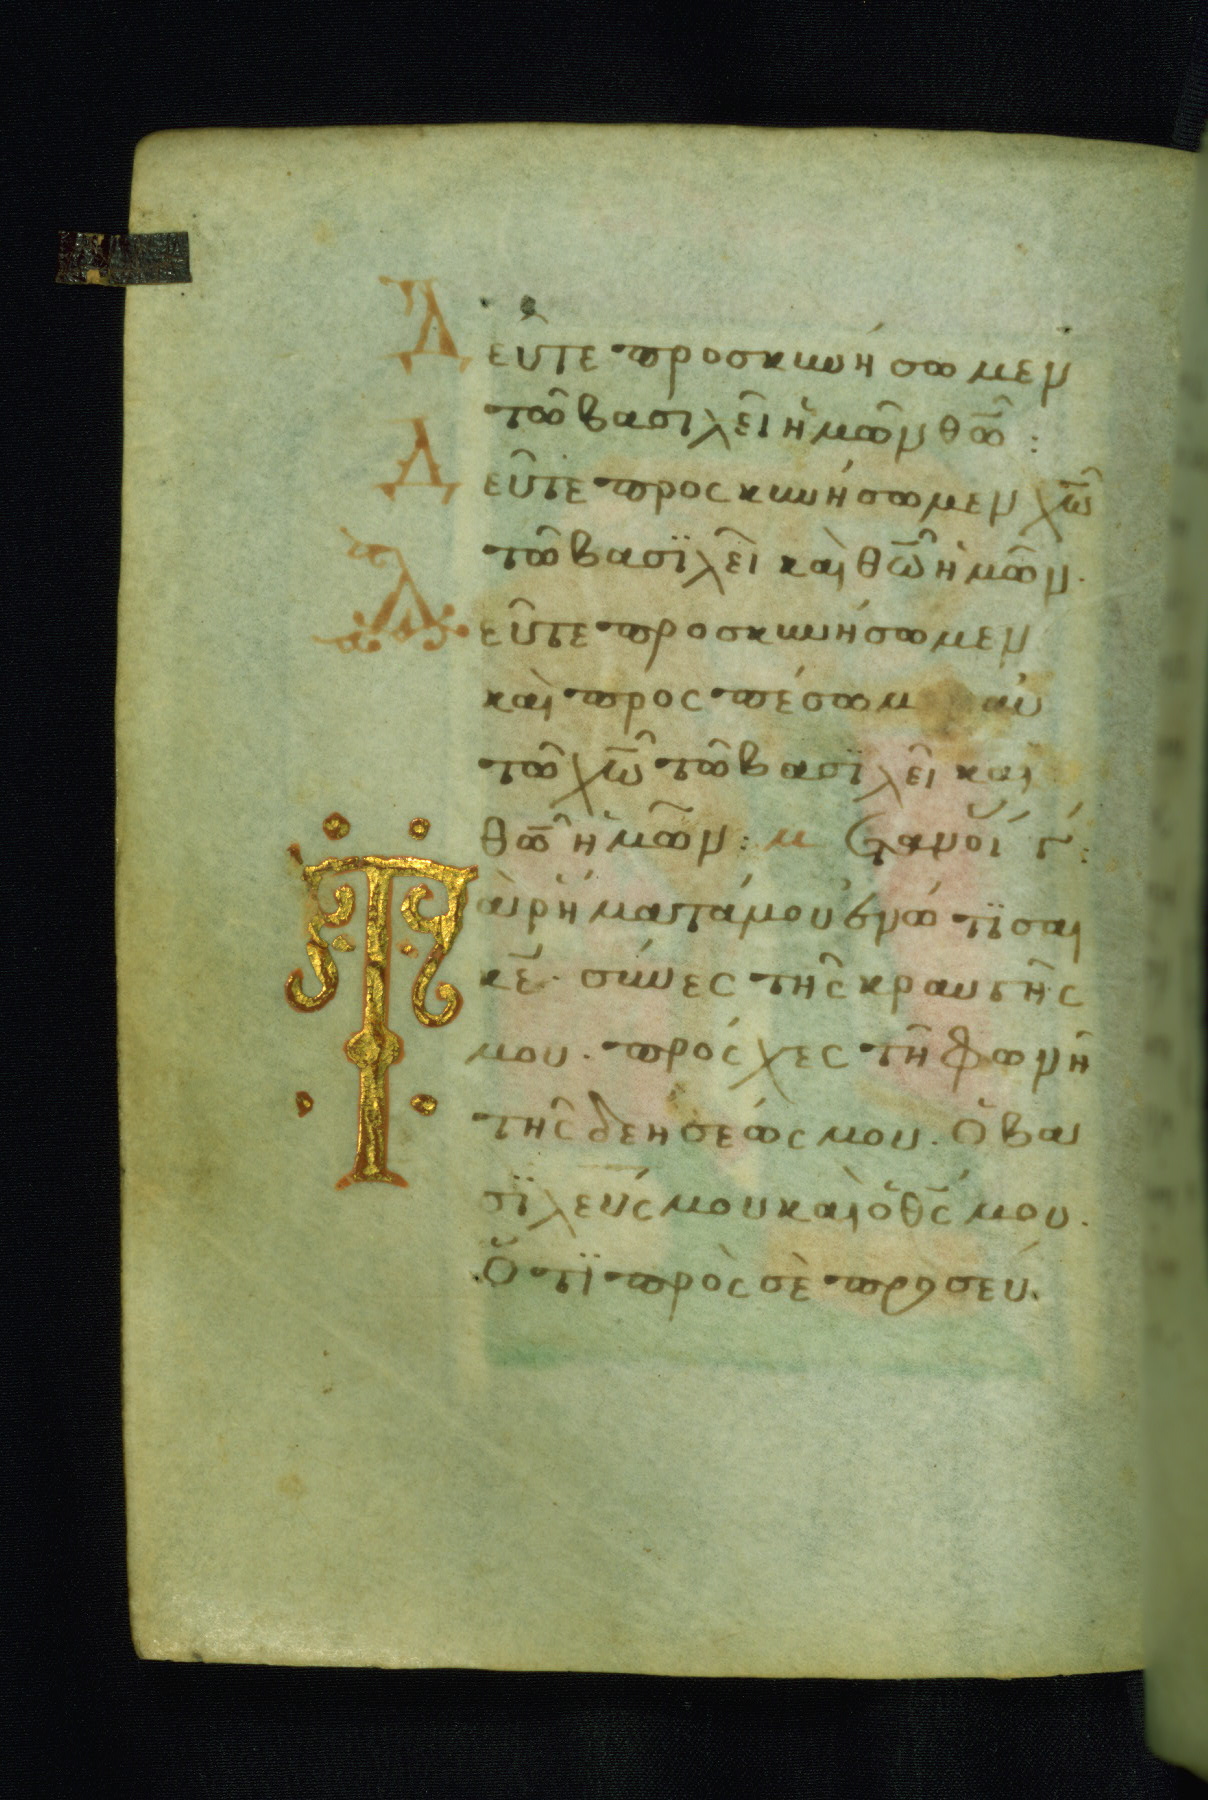 Δεῦτε προσκυνήσωμεν
τῶ βασιλεῖ ἡμῶν θῶ:
Δεῦτε προσκυνήσωμεν χῶ
τῶ βασϊλεῖ καὶ θῶ ἡμῶν.
Δεῦτε προσκυνήσωμεν
καὶ προσπέσωμ αὐ
τῶ χῶ τῶ βασϊλεῖ καὶ
θῶ ἡμῶν:
Τὰ ῥήματά μου ἐνώτϊσαι
κε̄. σύνες τῆς κραυγῆς
μου. πρόσχες τῆ φωνῆ
τῆς δεήσεώς μου. Ὁ βα
σϊλεύς μου καὶ ὁ θς̄ μου.
Ὅτϊ πρὸς σὲ προσεύ